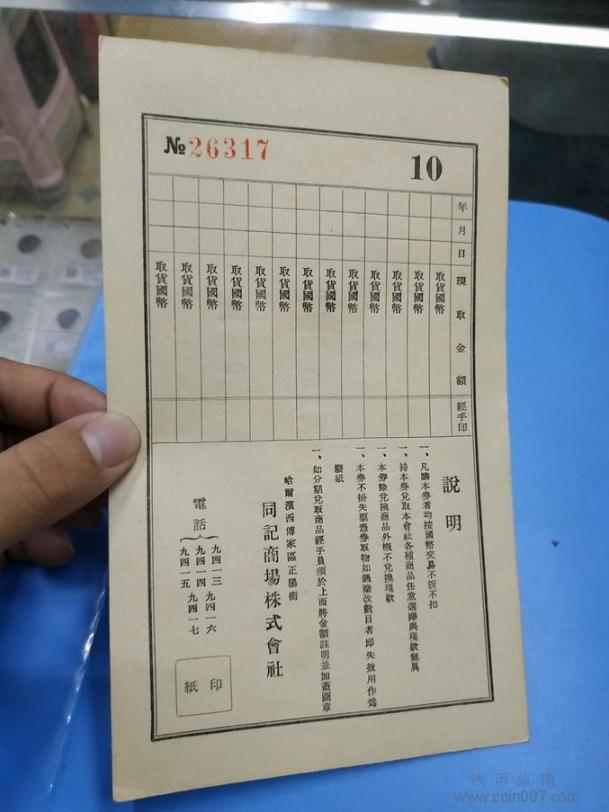 №26317
10
年 月 日 現取金額 經手印
取貨國幣
取貨國幣
取貨國幣
取貨國幣
取貨國幣
取貨國幣
取貨國幣
取貨國幣
取貨國幣
取貨國幣
取貨國幣
取貨國幣
取貨國幣
說明
一、凡購本券者均按國幣交易不折不扣
一、持本券兌取本會社各種商品任意選擇與現款無異
一、本券除兌換商品外概不兌換現款
一、本券不掛失票憑券取物如遇塗改數目者即失效用作為
廢紙
一、如分期兌取商品經手員須於上面將金額註明並加蓋圖章
哈爾濱西傅家區正陽街
同記商場株式會社
電話
九四一三 九四一六
九四一四
九四一五 九四一七
印紙
钱币纵横
www.coin007.com